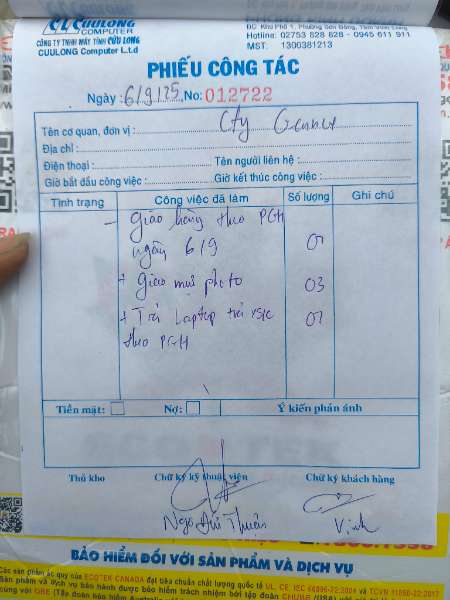 CL CUULONG
COMPUTER
CÔNG TY TNHH MÁY TÍNH CỬU LONG
CUULONG Computer L.t.d
Hotline: 02753 828 828 - 0945 611 911
MST: 1300381213
PHIẾU CÔNG TÁC
Ngày: 6/9/25 No: 012722
Tên cơ quan, đơn vị: Cty
Địa chỉ:
Điện thoại: Tên người liên hệ:
Giờ bắt đầu công việc: Giờ kết thúc công việc:
Tình trạng Công việc đã làm Số lượng Ghi chú
- Giao hàng theo PGH
ngày 6/9 01
+ Giao mực photo 03
+ Trả Laptop trả 01
theo PGH
Tiền mặt: Nợ: Ý kiến phản ánh
Thủ kho Chữ ký kỹ thuật viên Chữ ký khách hàng
Ngô Đức Thuần Vinh
BẢO HIỂM ĐỐI VỚI SẢN PHẨM VÀ DỊCH VỤ
Các sản phẩm ác quy của ECOTEK CANADA đạt tiêu chuẩn chất lượng quốc tế UL, CE, IEC
Sản phẩm và dịch vụ bảo hành được bảo hiểm trách nhiệm bởi tập đoàn